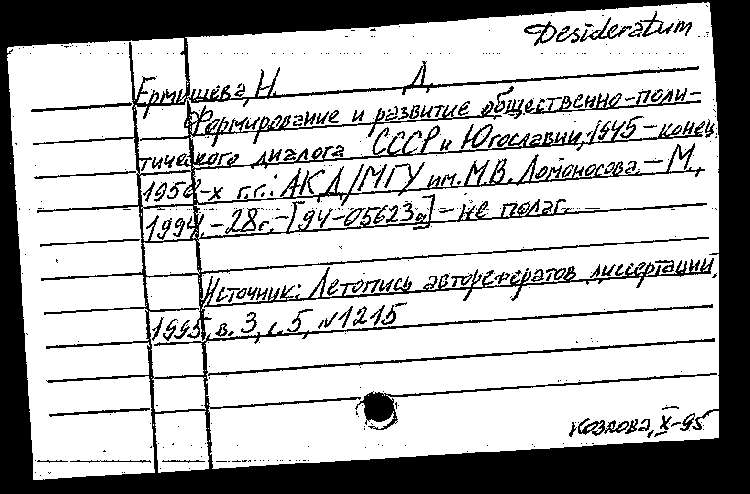 Desideratum
Ермишева, Н. Д.
Формирование и развитие общественно-поли-
тического диалога СССР и Югославии, 1945-конец
1950-х г.г.: АКД/МГУ им. М.В. Ломоносова. - М.,
1994. - 28с. - [94-05623а] - не полаг.
Источник: Летопись авторефератов диссертаций,
1995, в. 3, с. 5, №1215
Козлова, X-95